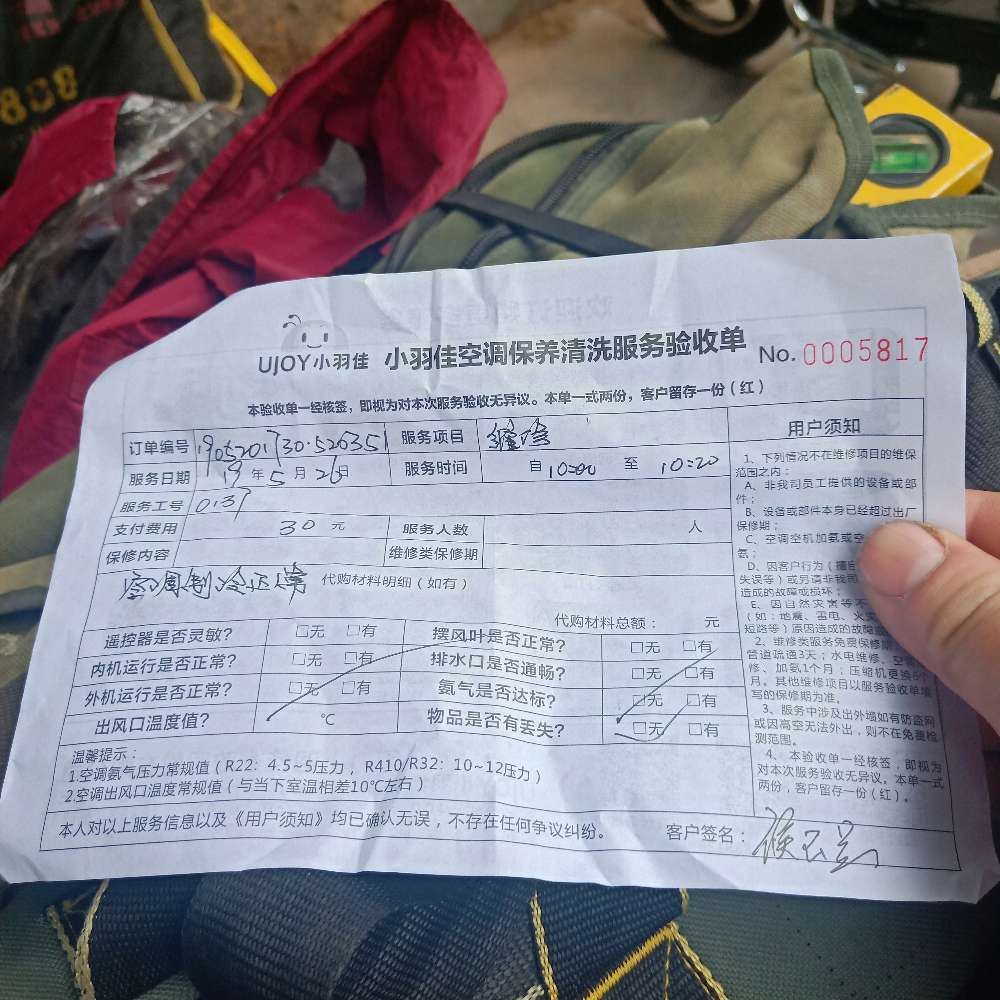 808
UJOY小羽佳 小羽佳空调保养清洗服务验收单 No. 0005817
本验收单一经核签，即视为对本次服务验收无异议。本单一式两份，客户留存一份（红）
订单编号 190520173052035 服务项目
服务日期 19年5月26日 服务时间 自 10:00 至 10:20
服务工号 0137
支付费用 30 元 服务人数 人
保修内容 维修类保修期
空调制冷正常 代购材料明细（如有）
代购材料总额： 元
遥控器是否灵敏？ □无 □有 摆风叶是否正常？ □无 □有
内机运行是否正常？ □无 □有 排水口是否通畅？ □无 □有
外机运行是否正常？ □无 □有 氨气是否达标？ □无 □有
出风口温度值？ ℃ 物品是否有丢失？ □无 □有
温馨提示：
1.空调氨气压力常规值（R22：4.5~5压力，R410/R32：10~12压力）
2.空调出风口温度常规值（与当下室温相差10℃左右）
本人对以上服务信息以及《用户须知》均已确认无误，不存在任何争议纠纷。 客户签名：
用户须知
1、下列情况不在维修项目的维保
范围之内：
A、非我司员工提供的设备或部
件；
B、设备或部件本身已经超过出厂
保修期；
C、空调空机加氨或空
氨；
D、因客户行为（擅自
失误等）或另请非我司
造成的故障或损坏；
E、因自然灾害等不
（如：地震、雷电、火灾
短路等）原因造成的故障或
2、维修类服务免费保修期
管道疏通3天；水电维修、空调
修、加氨1个月；压缩机更换6个
月。其他维修项目以服务验收单填
写的保修期为准。
3、服务中涉及出外墙如有防盗网
或因高空无法外出，则不在免费检
测范围。
4、本验收单一经核签，即视为
对本次服务验收无异议。本单一式
两份，客户留存一份（红）。